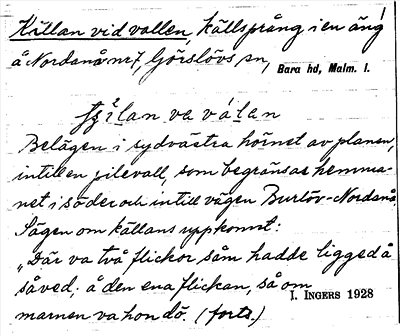 Källan vid vallen, källsprång i en äng
å Nordanå nr 7, Görslövs sn, Bara hd, Malm. l.
va válan
Belägen i sydvästra hörnet av planen,
intill en pilevall, som begränsar hemma-
net i söder och intill vägen Burlöv-Nordanå.
Sägen om källans uppkomst:
„Där va två flickor såm hadde ligged å
såved; å den ena flickan, så om
I. INGERS 1928
marnen va hon dö. (forts.)